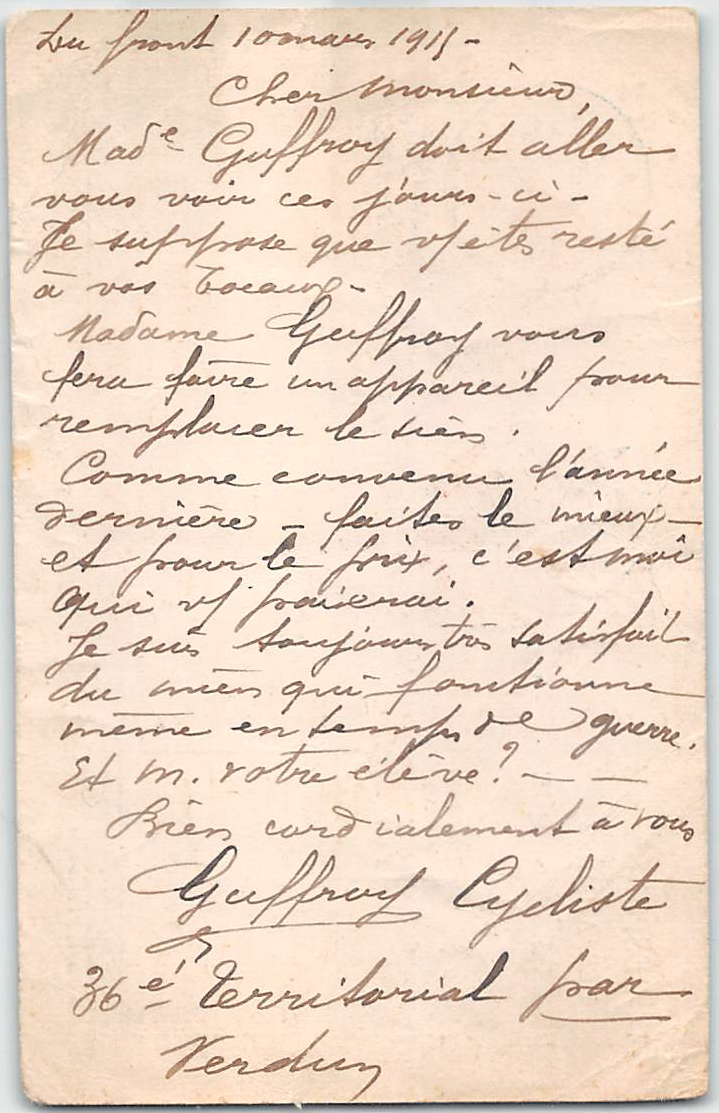 Du front 10 mars 1915 -
Cher Monsieur,
Made Guffroy doit aller
vous voir ces jours-ci -
Je suppose que vs êtes resté
à vos travaux -
Madame Guffroy vous
fera faire un appareil pour
remplacer le sien.
Comme convenu l'année
dernière - faites le mieux -
et pour le prix, c'est moi
qui vs paierai.
Je suis toujours très satisfait
du mien qui fonctionne
même en temps de guerre.
Et M. votre élève ? - -
Bien cordialement à vous
Guffroy Cycliste
36e Territorial par
Verdun